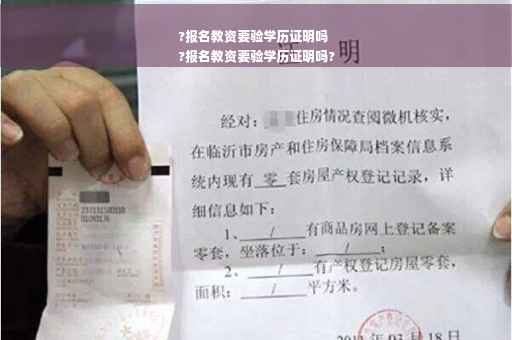 ?报名教资要验学历证明吗
?报名教资要验学历证明吗?
明
经对:住房情况查阅微机核实,
在临沂市房产和住房保障局档案信息系
统内现有 零 套房屋产权登记记录, 详
细信息如下:
1、 / 有商品房网上登记备案
零套, 坐落位于: / ;
2、 / 有产权登记房屋零套,
面积: / 平方米。
03月18日